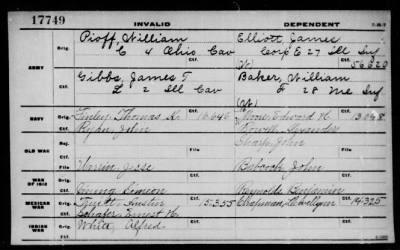 17749
INVALID DEPENDENT
Pioff, William Elliott, James
Orig. C 4 Ohio Cav Orig. Corp E 27 Ill Inf
Ctf. (W) Ctf. 56620
ARMY
Gibbs, James T Baker, William
Orig. L 2 Ill Cav Orig. F 28 Me Inf
Ctf. (W) Ctf.
NAVY Orig. Finley, Thomas A. Ctf. 16646 Orig. Edward H. Ctf.
Ryan, John Alexander
OLD WAR File File Sharp, John
Jesse Babcock, John
WAR OF 1812 File Simeon File Reynolds, Benjamin
MEXICAN WAR Orig. Truett, Austin Ctf. 15355 Orig. Chapman, Llewellyn Ctf. 14325
Schafer, Ernest H.
INDIAN White, Alfred